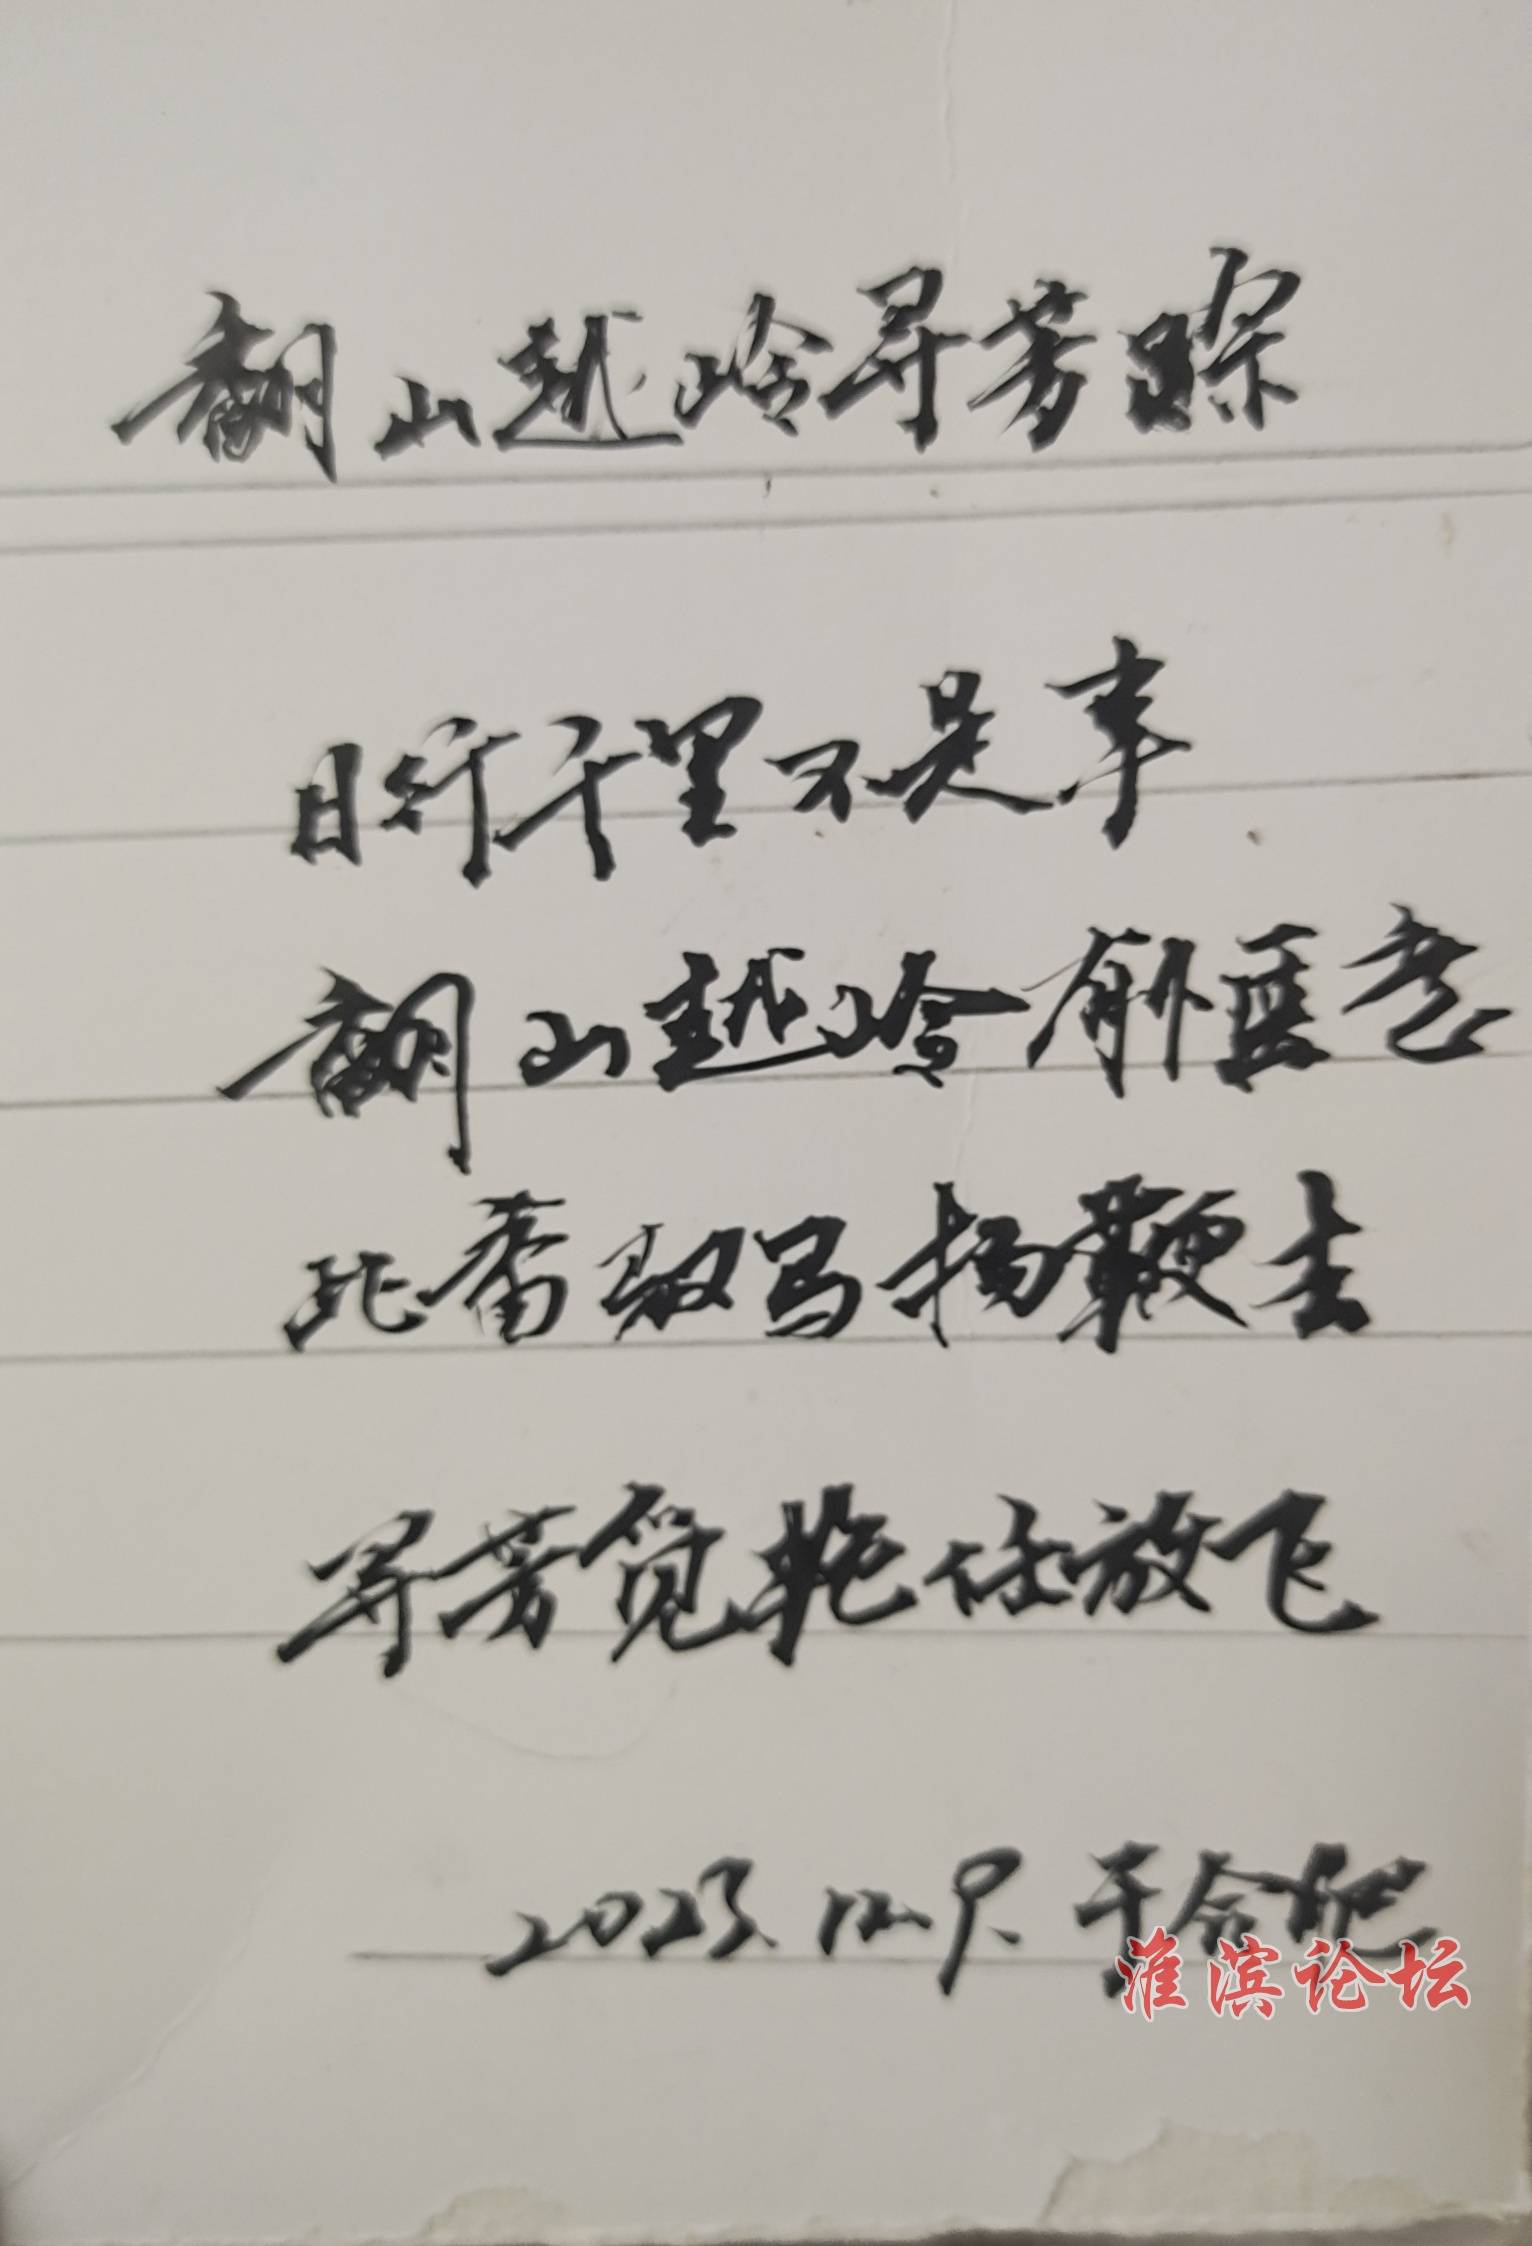 翻山越岭寻芳踪
日行千里不是事
翻山越岭有外蓝
此番驭马扬鞭去
寻芳觅艳任放飞
2023.12. 于合肥
淮滨论坛